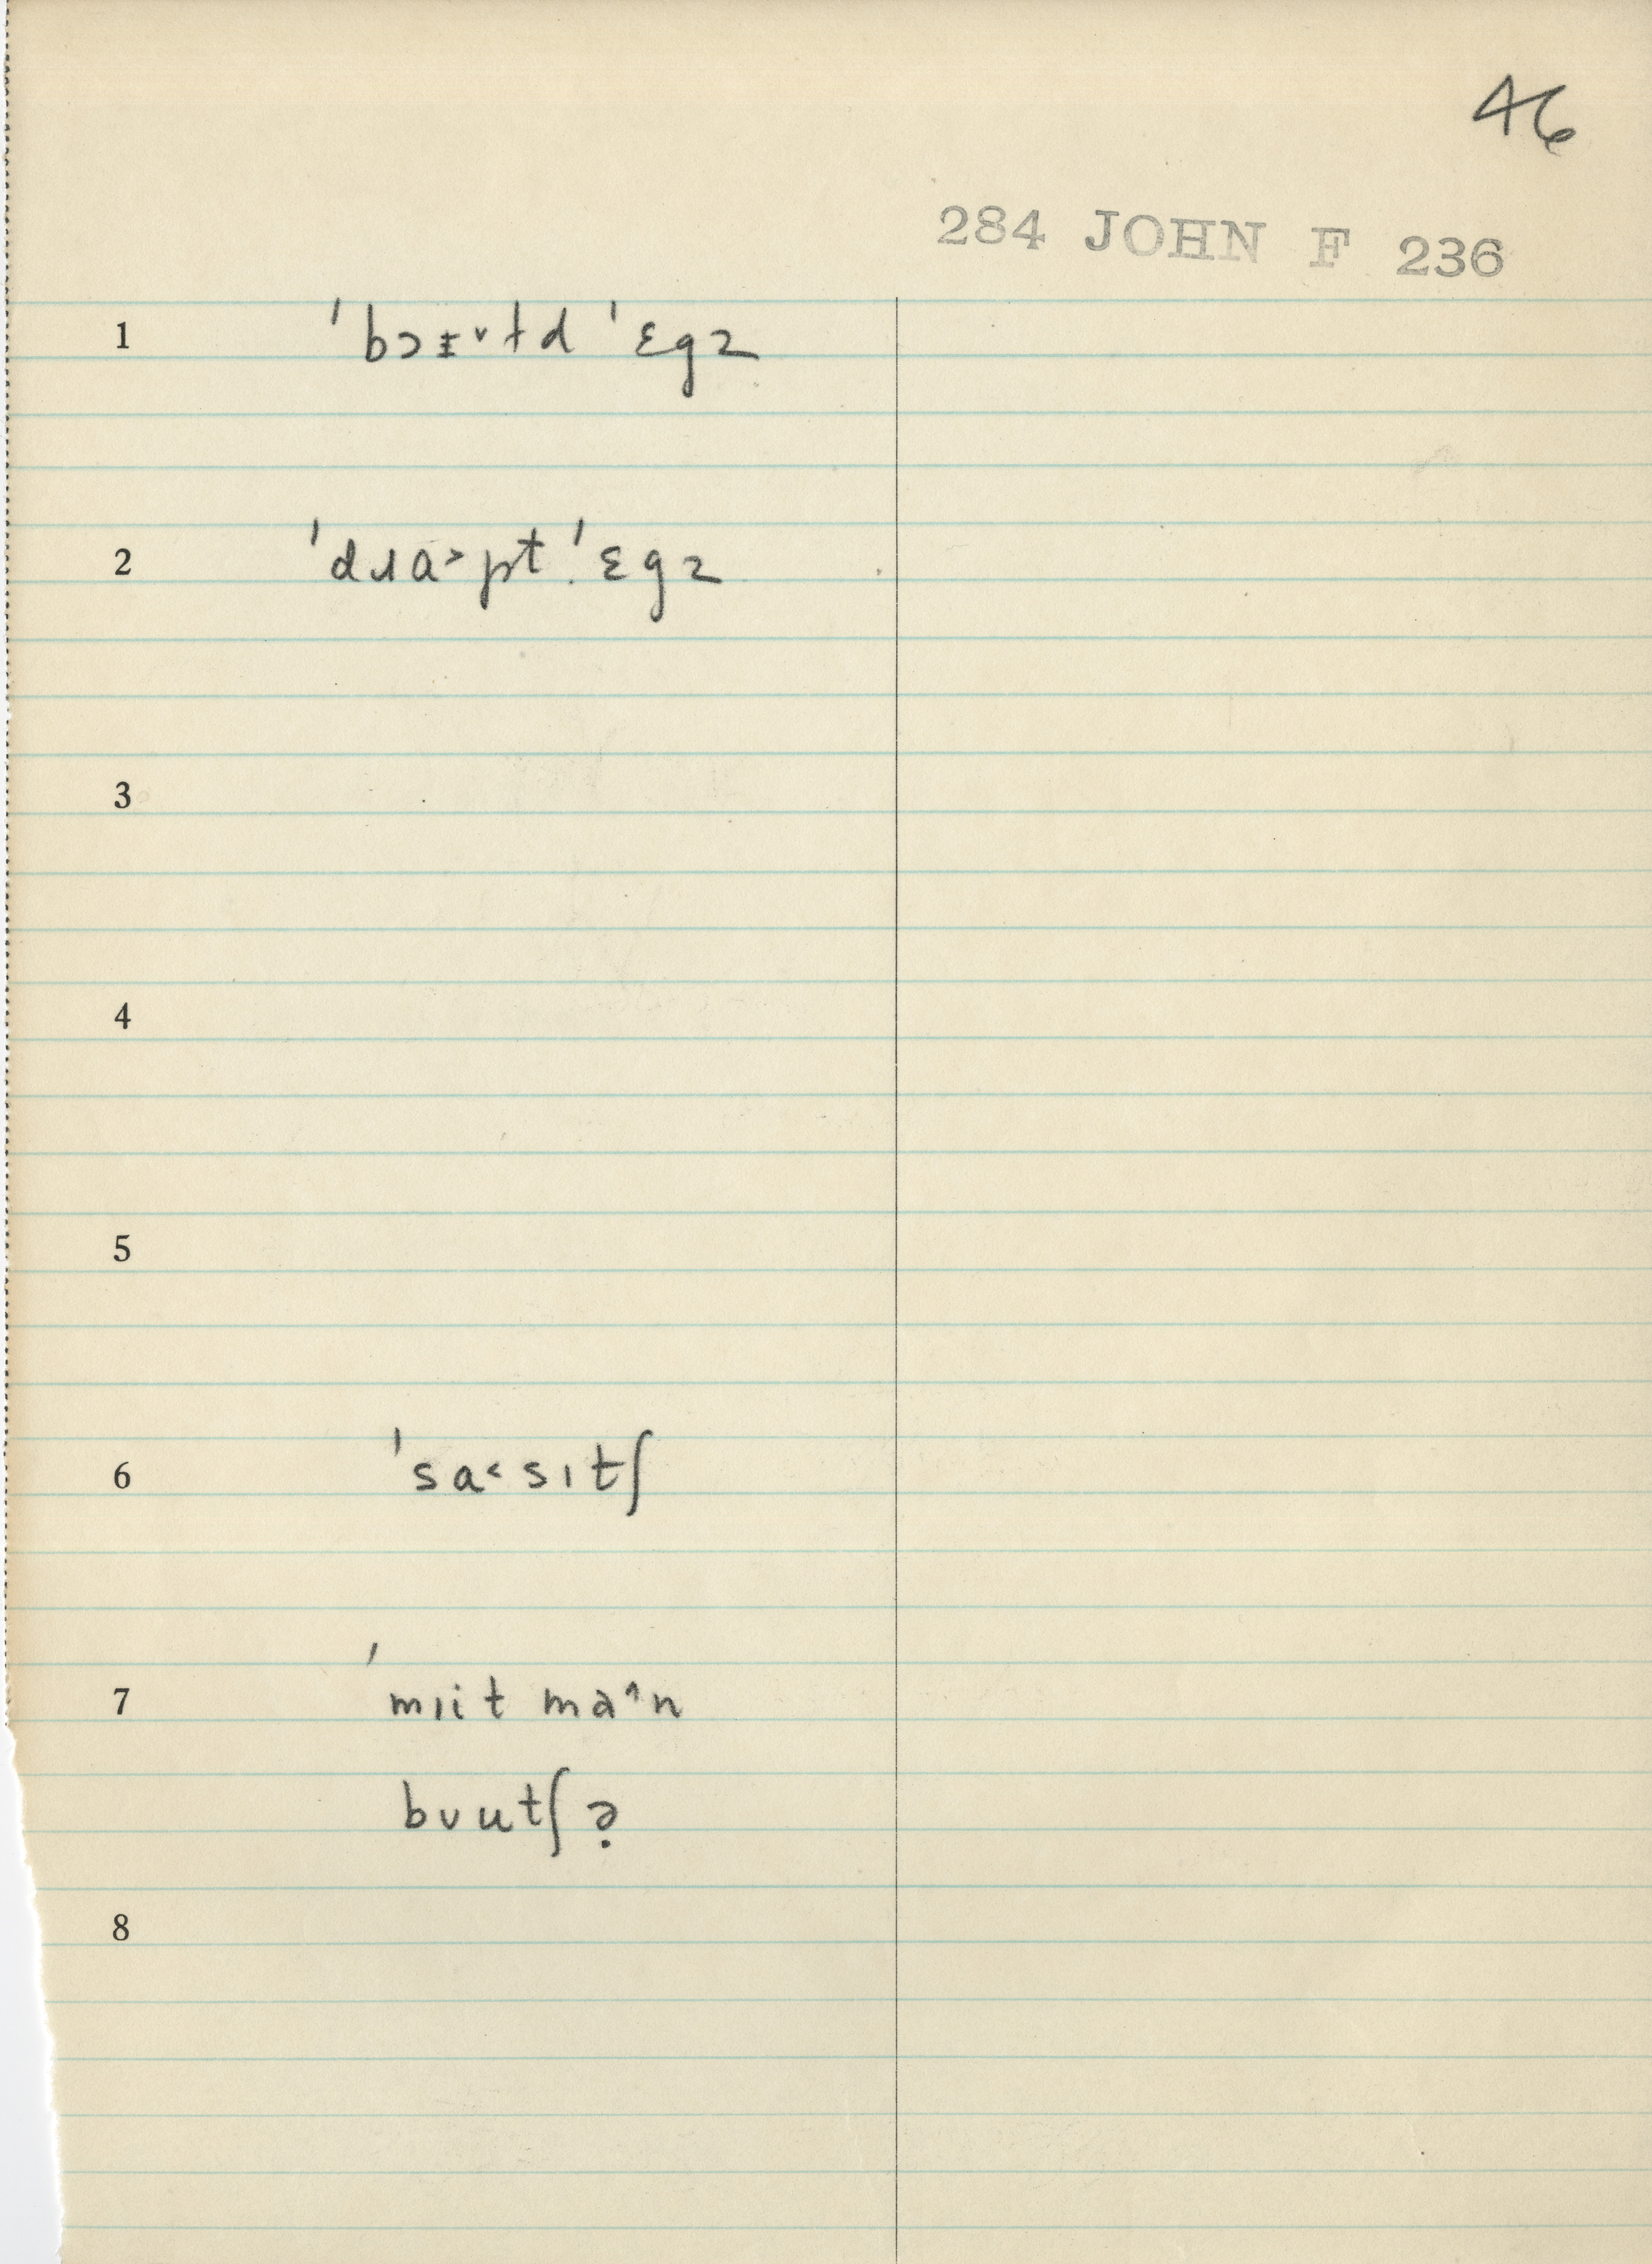 46
284 JOHN F 236
1 ˈbɔᵻ˅ɫd ˈɛgz
2 ˈdɹɑ˃pt ˈɛgz
3
4
5
6 ˈsɑ˂sɪtʃ
7 ˈmɪit ma˄n
bʊutʃə̣
8